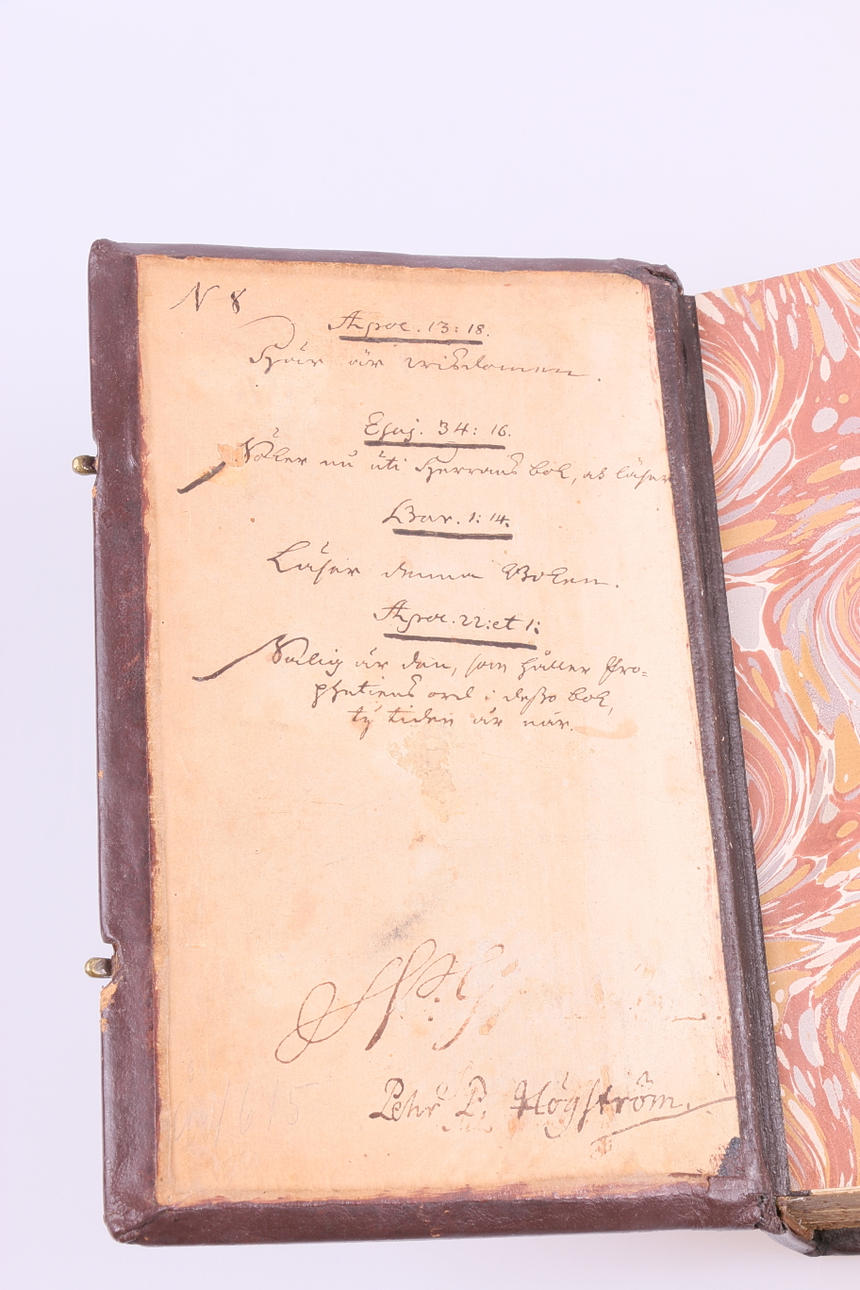 N 8
Apoc. 13: 18.
Här är wisdomen.
Esaj. 34: 16.
Söker nu uti Herrans bok, ok läser
Bar. 1: 14.
Läser denna Boken.
Apoc. 22: et 1:
Salig är den, som håller Pro=
phetiens ord i desso bok,
ty tiden är när.
Petr P. Högström.